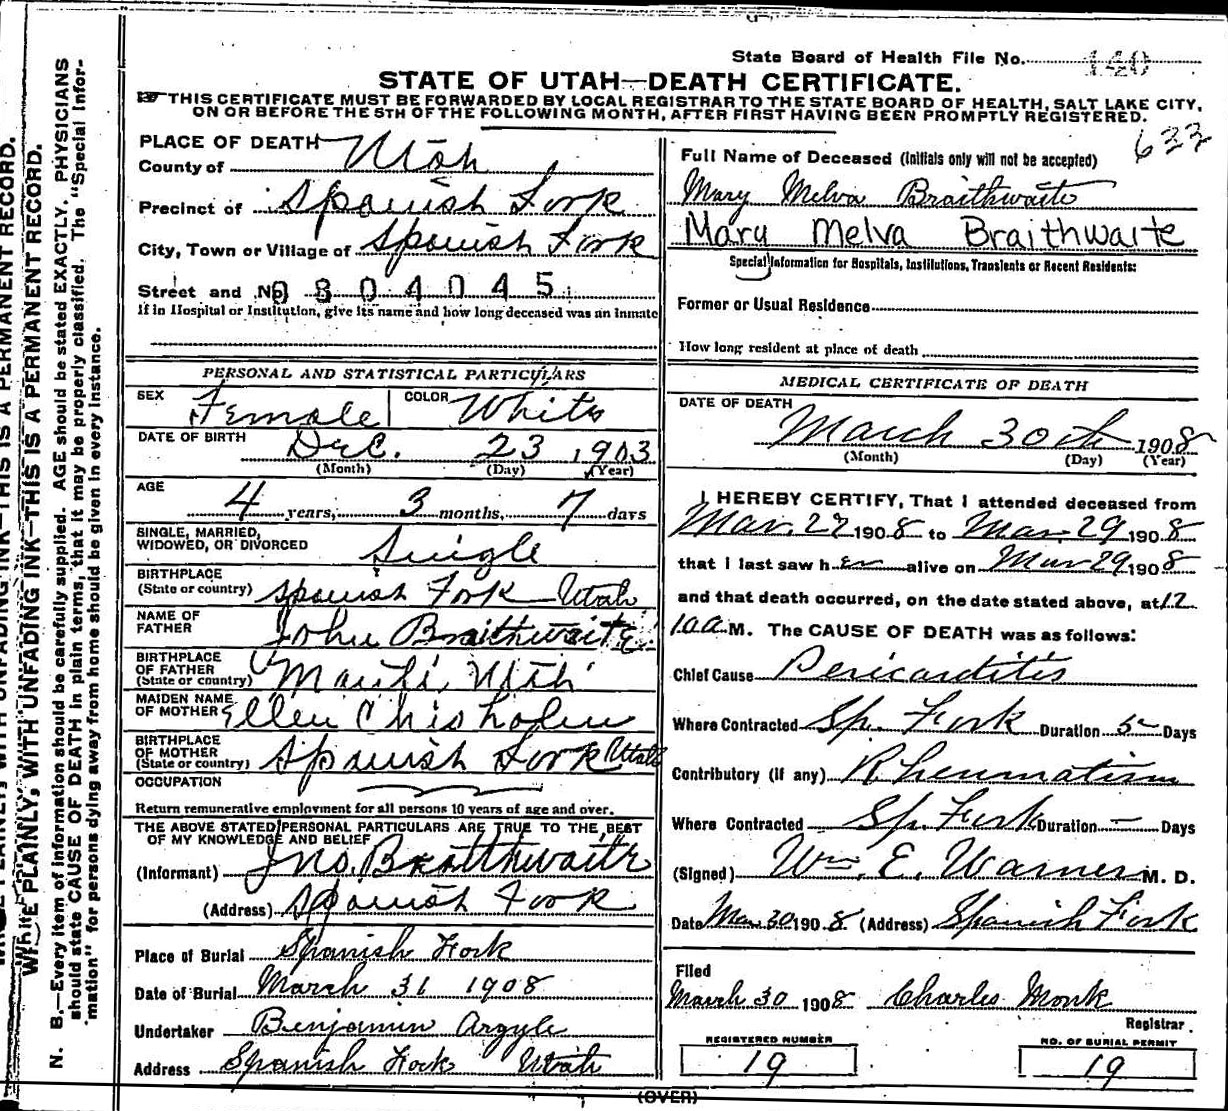 State Board of Health File No. 140
STATE OF UTAH—DEATH CERTIFICATE.
THIS CERTIFICATE MUST BE FORWARDED BY LOCAL REGISTRAR TO THE STATE BOARD OF HEALTH, SALT LAKE CITY,
ON OR BEFORE THE 5TH OF THE FOLLOWING MONTH, AFTER FIRST HAVING BEEN PROMPTLY REGISTERED.
633
PLACE OF DEATH
County of Utah
Precinct of Spanish Fork
City, Town or Village of Spanish Fork
Street and No. 0804045
If in Hospital or Institution, give its name and how long deceased was an inmate
PERSONAL AND STATISTICAL PARTICULARS
SEX Female COLOR White
DATE OF BIRTH Dec. 23 1903
(Month) (Day) (Year)
AGE
4 years, 3 months, 7 days
SINGLE, MARRIED,
WIDOWED, OR DIVORCED Single
BIRTHPLACE
(State or country) Spanish Fork Utah
NAME OF
FATHER John Braithwaite
BIRTHPLACE
OF FATHER
(State or country) Manti, Utah
MAIDEN NAME
OF MOTHER Ellen Chisholm
BIRTHPLACE
OF MOTHER
(State or country) Spanish Fork Utah
OCCUPATION
Return remunerative employment for all persons 10 years of age and over.
THE ABOVE STATED PERSONAL PARTICULARS ARE TRUE TO THE BEST
OF MY KNOWLEDGE AND BELIEF
(Informant) Jno. Braithwaite
(Address) Spanish Fork
Place of Burial Spanish Fork
Date of Burial March 31 1908
Undertaker Benjamin Argyle
Address Spanish Fork Utah
Full Name of Deceased (Initials only will not be accepted)
Mary Melva Braithwaite
Mary Melva Braithwaite
Special Information for Hospitals, Institutions, Transients or Recent Residents:
Former or Usual Residence
How long resident at place of death
MEDICAL CERTIFICATE OF DEATH
DATE OF DEATH
March 30th 1908
(Month) (Day) (Year)
I HEREBY CERTIFY, That I attended deceased from
Mar. 27 1908 to Mar. 29 1908
that I last saw her alive on Mar 29 1908
and that death occurred, on the date stated above, at 12
10 a M. The CAUSE OF DEATH was as follows:
Chief Cause Pericarditis
Where Contracted Sp. Fork Duration 5 Days
Contributory (if any) Rheumatism
Where Contracted Sp. Fork Duration — Days
(Signed) Wm. E. Warner M. D.
Date Mar 30 1908 (Address) Spanish Fork
Filed
March 30 1908 Charles Monk
Registrar.
REGISTERED NUMBER
19
NO. OF BURIAL PERMIT
19
(OVER)
WRITE PLAINLY, WITH UNFADING INK—THIS IS A PERMANENT RECORD.
N. B.—Every item of information should be carefully supplied. AGE should be stated EXACTLY. PHYSICIANS
should state CAUSE OF DEATH in plain terms, that it may be properly classified. The "Special Infor-
mation" for persons dying away from home should be given in every instance.